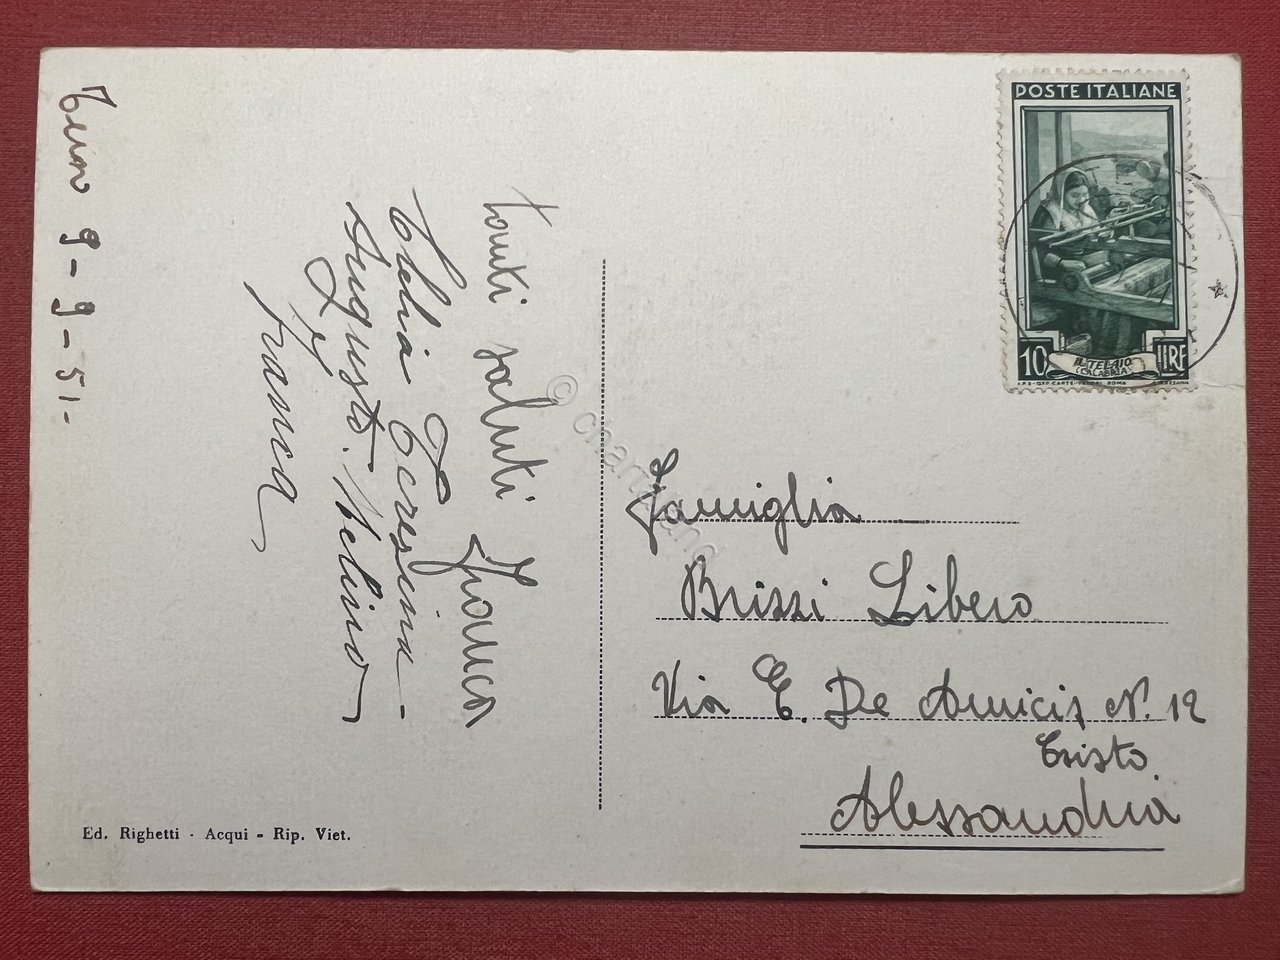 9-9-51-
tanti saluti Franca
Clelia Teresina -
Augusto. Melino
Franca
Ed. Righetti - Acqui - Rip. Viet.
POSTE ITALIANE
10 LIRE
IL TELAIO
(CALABRIA)
Famiglia
Brizzi Libero
Via E. De Amicis N. 12
Cristo
Alessandria
© cartolina